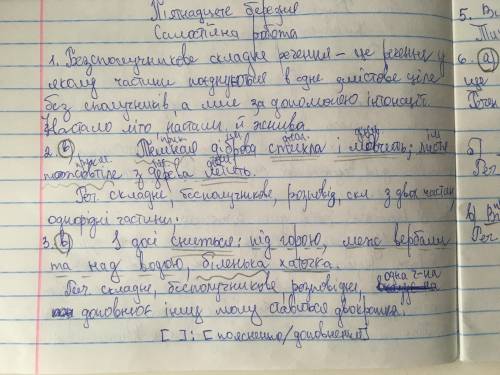 П'ятнадцяте березня
Самостійна робота
1. Безсполучникове складне речення – це речення, у
якому частини поєднуються в одне змістове ціле
без сполучників, а лише за допомогою інтонації.
Настало літо, настали й жнива.
2. (б) Темная діброва стихла і мовчить; листя
пожовтіле з дерева летить.
Реч. складне, безсполучникове, розповід, скл. з двох частин,
однорідні частини.
3. (б) І досі сниться: під горою, меж вербами
та над водою, біленька хаточка.
Реч. складне, безсполучникове розповідне, одна ч-на
доповнює іншу тому ставиться двокрапка.
[ ]: [пояснення/доповнення]
5.
6. (а)
б)
Реч.
в)
Реч